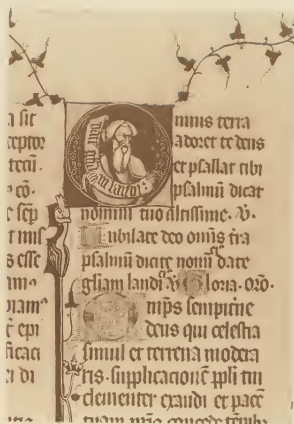 a sit
ceptor
tecū.
cō.
e sep
t mis
s esse
iam
ficaci
ei di
mnis terra
adoret te deus
et psallat tibi
psalmū dicat
nomini tuo altissime. V.
Iubilate deo omīs t̄ra
psalmū dicite nomī date
gl̄iam laudi V Gloria. Oꝛo.
Omīps sempit̄ne
deus qui celestia
simul et terrena modera
ris. supplicacioñ ppl̄i tui
clementer exaudi et pacē
tuam n̄ris concede tempib